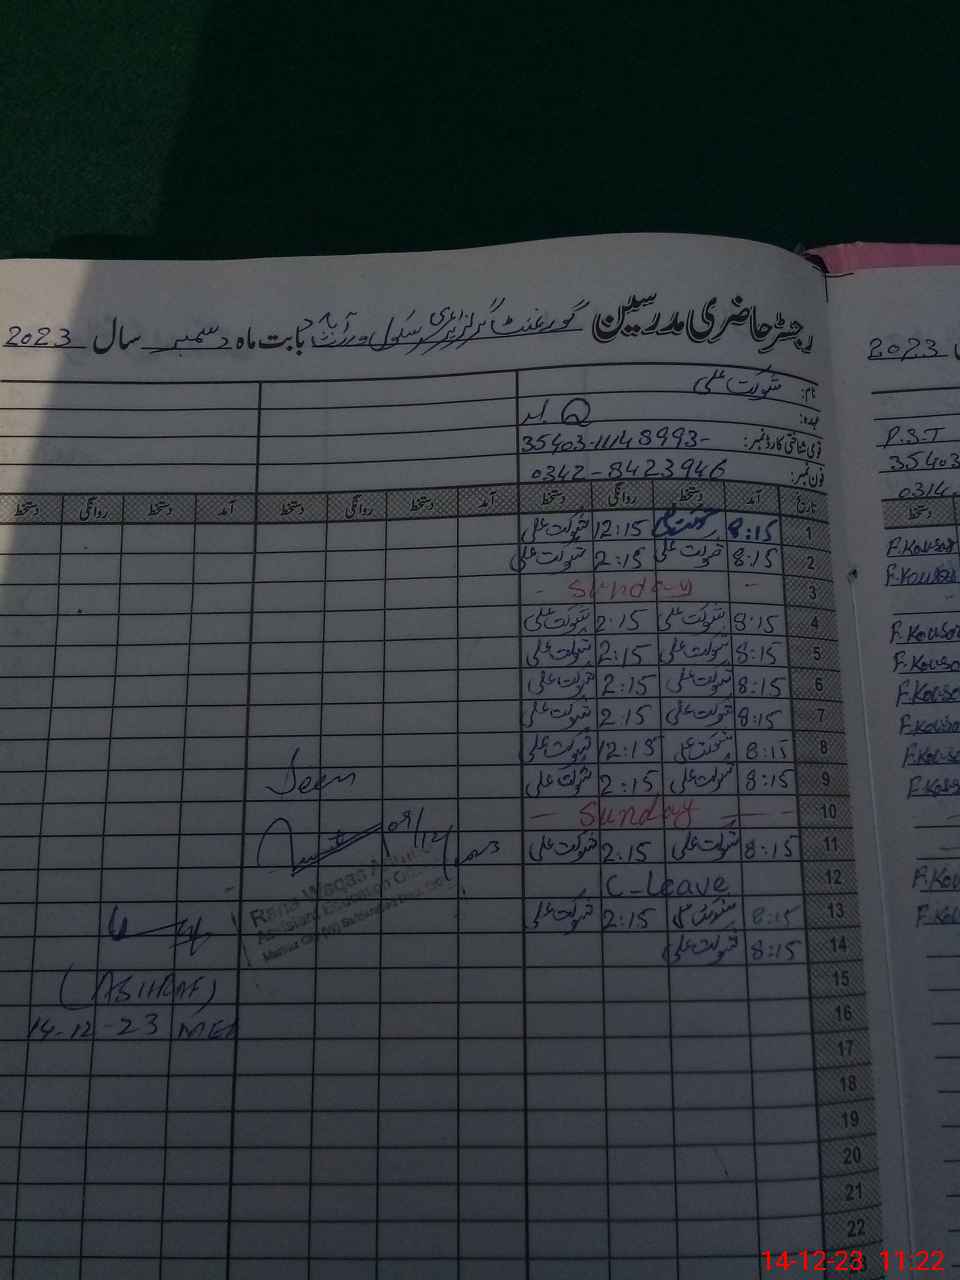 رجسٹر حاضری مدرسین گورنمنٹ گرلز پرائمری سکول بابت ماہ دسمبر سال 2023
نام: شوکت علی
عہدہ:
قومی شناختی کارڈ نمبر: 35403-11148993-
فون نمبر: 0342-8423946
تاریخ آمد دستخط روانگی دستخط آمد دستخط روانگی دستخط آمد دستخط روانگی دستخط
1 8:15 شوکت علی 12:15 شوکت علی
2 8:15 شوکت علی 2:15 شوکت علی
3 - Sunday -
4 8:15 شوکت علی 2:15 شوکت علی
5 8:15 شوکت علی 2:15 شوکت علی
6 8:15 شوکت علی 2:15 شوکت علی
7 8:15 شوکت علی 2:15 شوکت علی
8 8:15 شوکت علی 12:15 شوکت علی
9 8:15 شوکت علی 2:15 شوکت علی
10 - Sunday - -
11 8:15 شوکت علی 2:15 شوکت علی
12 C-Leave
13 8:15 شوکت علی 2:15 شوکت علی
14 8:15 شوکت علی
15
16
17
18
19
20
21
22
Seen
09/12/2023
Rana Waqas
Assistant Education
(ASHRAF)
14-12-23
2023
P.S.T
35403
0314
دستخط
F.Kousar
F.Kousar
F.Kousar
F.Kousar
F.Kousar
F.Kousar
F.Kousar
F.Kousar
F.Kou
F.Kou
14-12-23 11:22